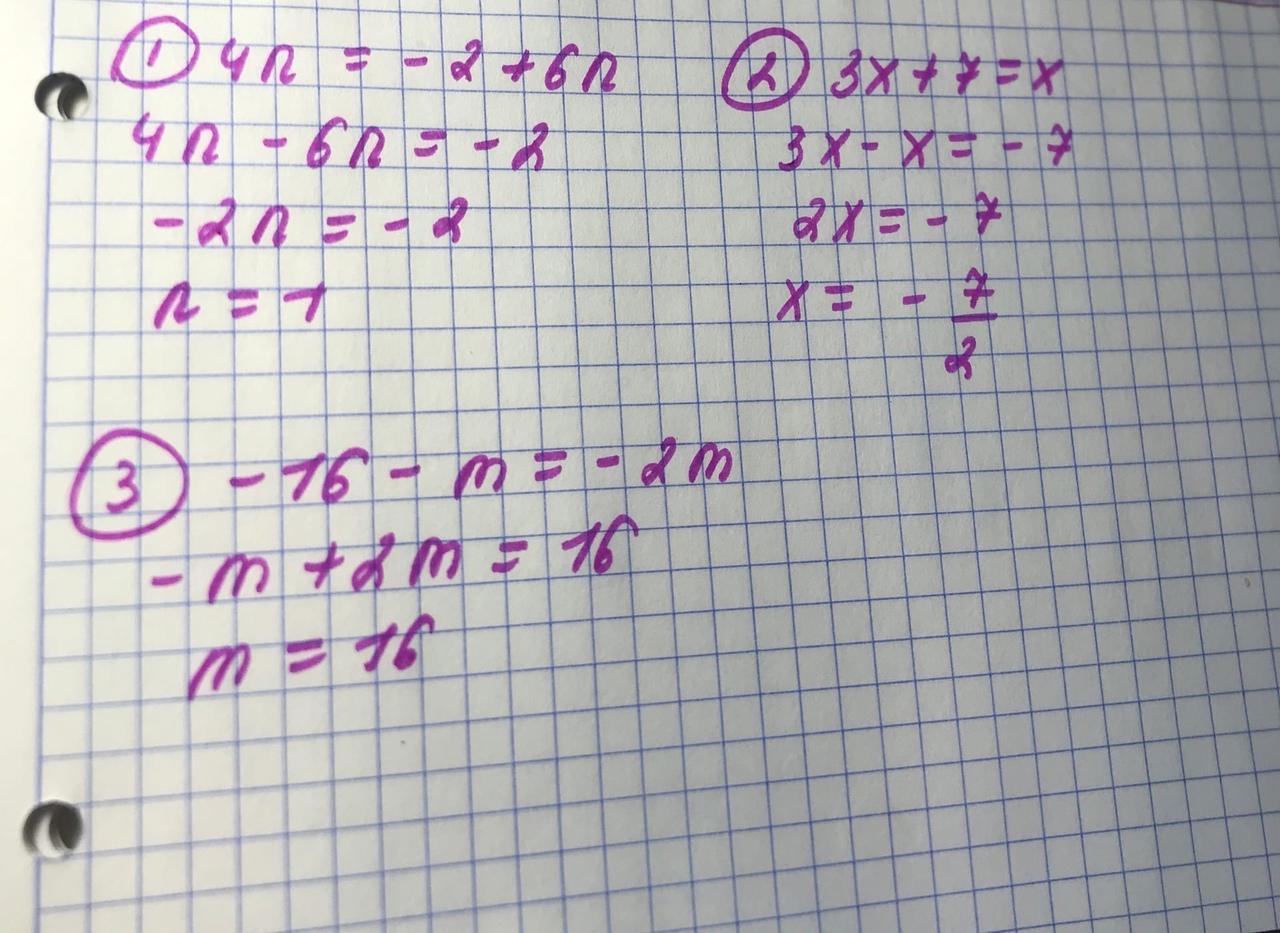 ① 4n = -2+6n
4n - 6n = -2
-2n = -2
n = 1
② 3x+7=x
3x - x = -7
2x = -7
x = - 7/2
③ -16 - m = -2m
-m +2m = 16
m = 16